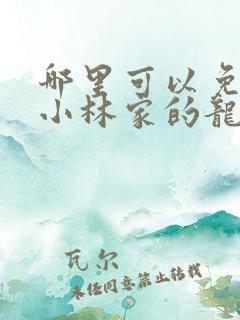 哪里可以免
小林家的龍
瓦尔
未经同意禁止转载